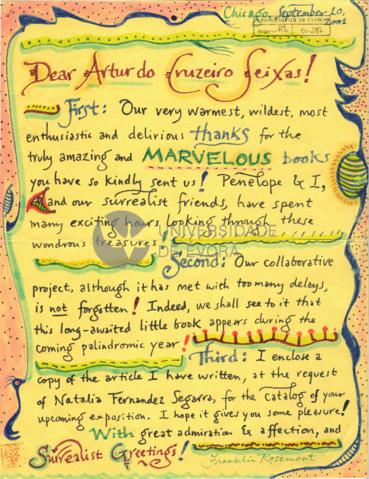 Chicago, September 10, 2001
UNIVERSIDADE DE ÉVORA
Dear Artur do Cruzeiro Seixas!
First: Our very warmest, wildest, most
enthusiastic and delirious thanks for the
truly amazing and MARVELOUS books
you have so kindly sent us! Penelope & I,
and our surrealist friends, have spent
many exciting hours looking through these
wondrous treasures!
UNIVERSIDADE
DE ÉVORA
Second: Our collaborative
project, although it has met with too many delays,
is not forgotten! Indeed, we shall see to it that
this long-awaited little book appears during the
coming palindromic year!
Third: I enclose a
copy of the article I have written, at the request
of Natalia Fernandez Segarra, for the catalog of your
upcoming exposition. I hope it gives you some pleasure!
With great admiration & affection, and
Surrealist Greetings!
Franklin Rosemont